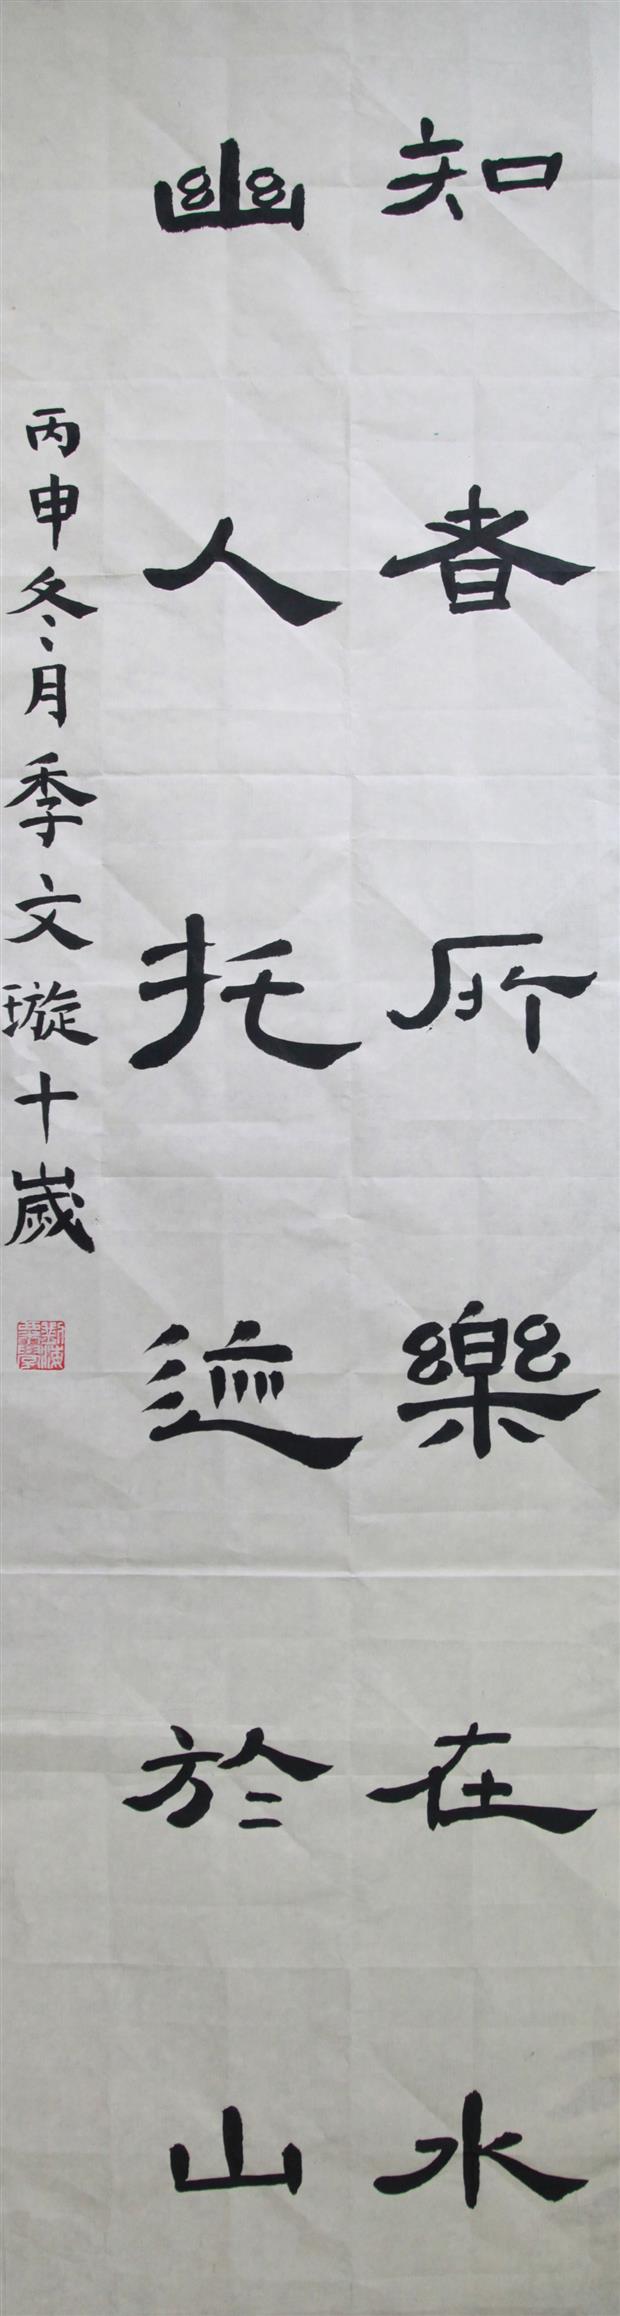 知者所樂在水
幽人托迹於山
丙申冬月季文璇十歲